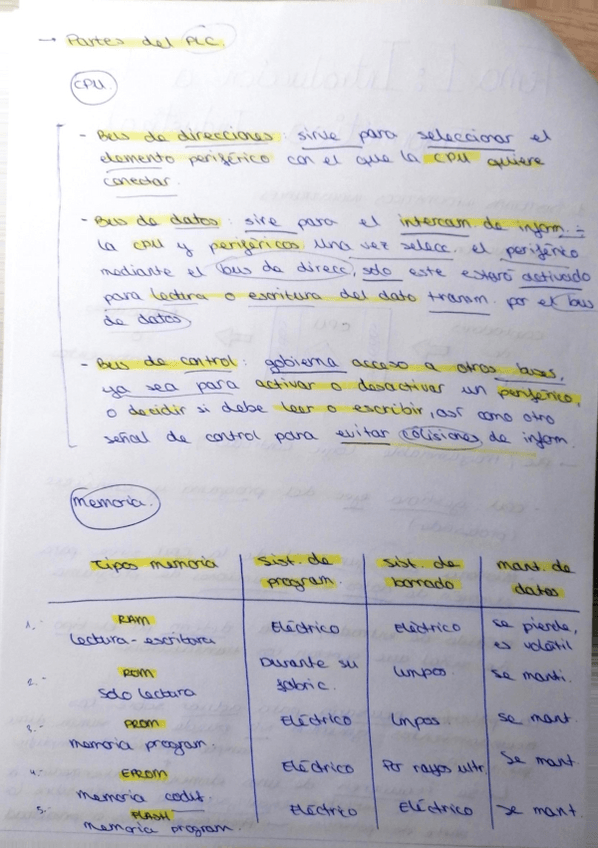 → Partes del PLC.
CPU.
- Bus de direcciones: sirve para seleccionar el
elemento periférico con el que la CPU quiere
conectar.
- Bus de datos: sirve para el intercam. de inform. ÷
la CPU y periféricos. Una vez selecc. el periférico
mediante el bus de direcc, solo este estará activado
para lectura o escritura del dato transm. por el bus
de datos.
- Bus de control: gobierna acceso a otros buses,
ya sea para activar o desactivar un periférico,
o decidir si debe leer o escribir, así como otro
señal de control para evitar colisiones de inform.
Memoria.
Tipos memoria | sist. de program. | sist. de borrado | mant. de datos
1.- RAM lectura-escritura | Eléctrico | Eléctrico | se pierde, es volátil
2.- ROM solo lectura | Durante su fabric. | Impos. | se manti.
3.- PROM memoria program. | Eléctrico | Impos | se mant.
4.- EPROM memoria codif. | Eléctrico | Por rayos ultr. | se mant.
5.- FLASH memoria program. | Eléctrico | Eléctrico | se mant.